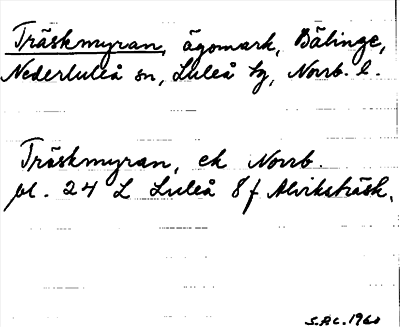 Träskmyran, ägomark, Bälinge,
Nederluleå sn, Luleå tg, Norrb. l.
Träskmyran, ek Norrb.
bl. 24 L Luleå 8 f Alviksträsk.
S.Ac. 1960